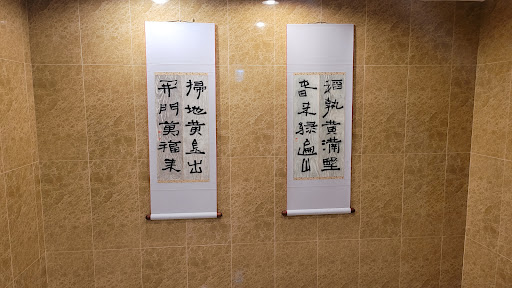 稻熟黄滿野
春来緑遍山
掃地黄金出
开門萬福来